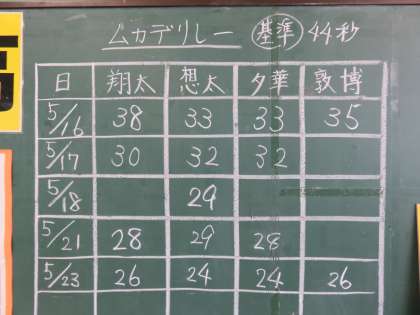 ムカデリレー 基準 44秒
日 翔太 想太 夕華 敦博
5/16 38 33 33 35
5/17 30 32 32
5/18 29
5/21 28 29 28
5/23 26 24 24 26